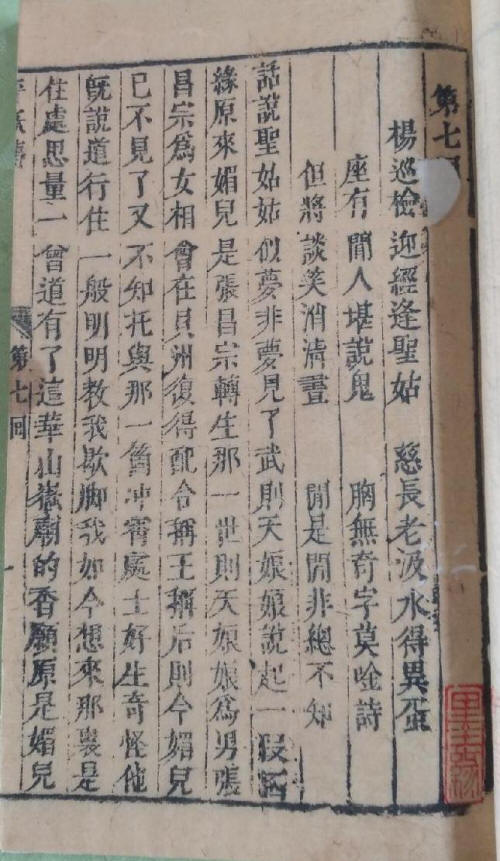 第七回
楊巡檢迎經逢聖姑　慈長老汲水得異蛋
座有閒人堪說鬼　胸無奇字莫唫詩
但將談笑消淸晝　閒是閒非總不知
話說聖姑姑似夢非夢見了武則天娘娘說起一段因
緣原來媚兒是張昌宗轉生那一世則天娘娘爲男張
昌宗爲女相會在貝州復得配合稱王稱后則今媚兒
已不見了又不知托與那一箇冲霄處士好生奇怪他
旣說道行住一般明明教我歇脚我如今想來那裏是
住處思量一會道有了這華山嶽廟的香願原是媚兒
第七回